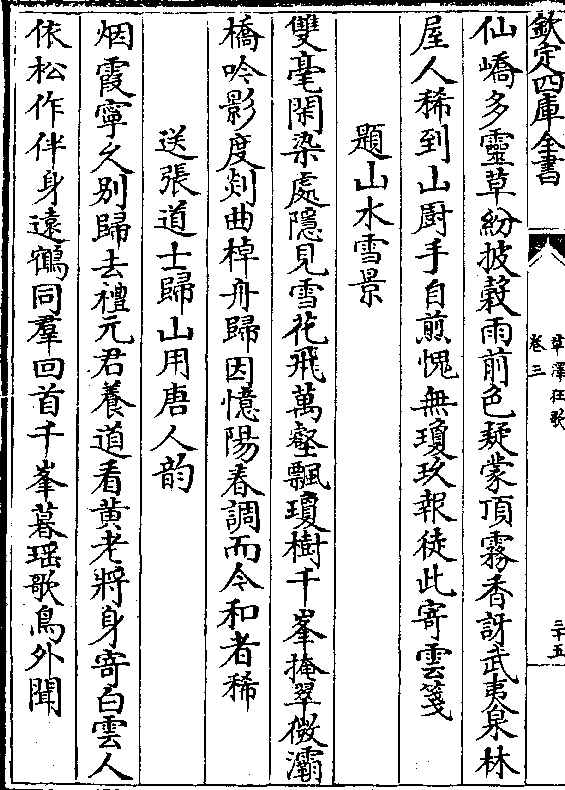 欽定四庫全書
草澤狂歌
卷三
二十五
仙嶠多靈草紛披穀雨前色疑蒙頂霧香訝武夷泉林
屋人稀到山厨手自煎愧無瓊玖報徒此寄雲箋
題山水雪景
雙毫閑染處隱見雪花飛萬壑飄瓊樹千峯掩翠微灞
橋吟影度剡曲棹舟歸因憶陽春調而今和者稀
送張道士歸山用唐人韵
烟霞寧久别歸去禮元君養道看黄老將身寄白雲人
依松作伴身遠鶴同羣回首千峯暮瑶歌鳥外聞